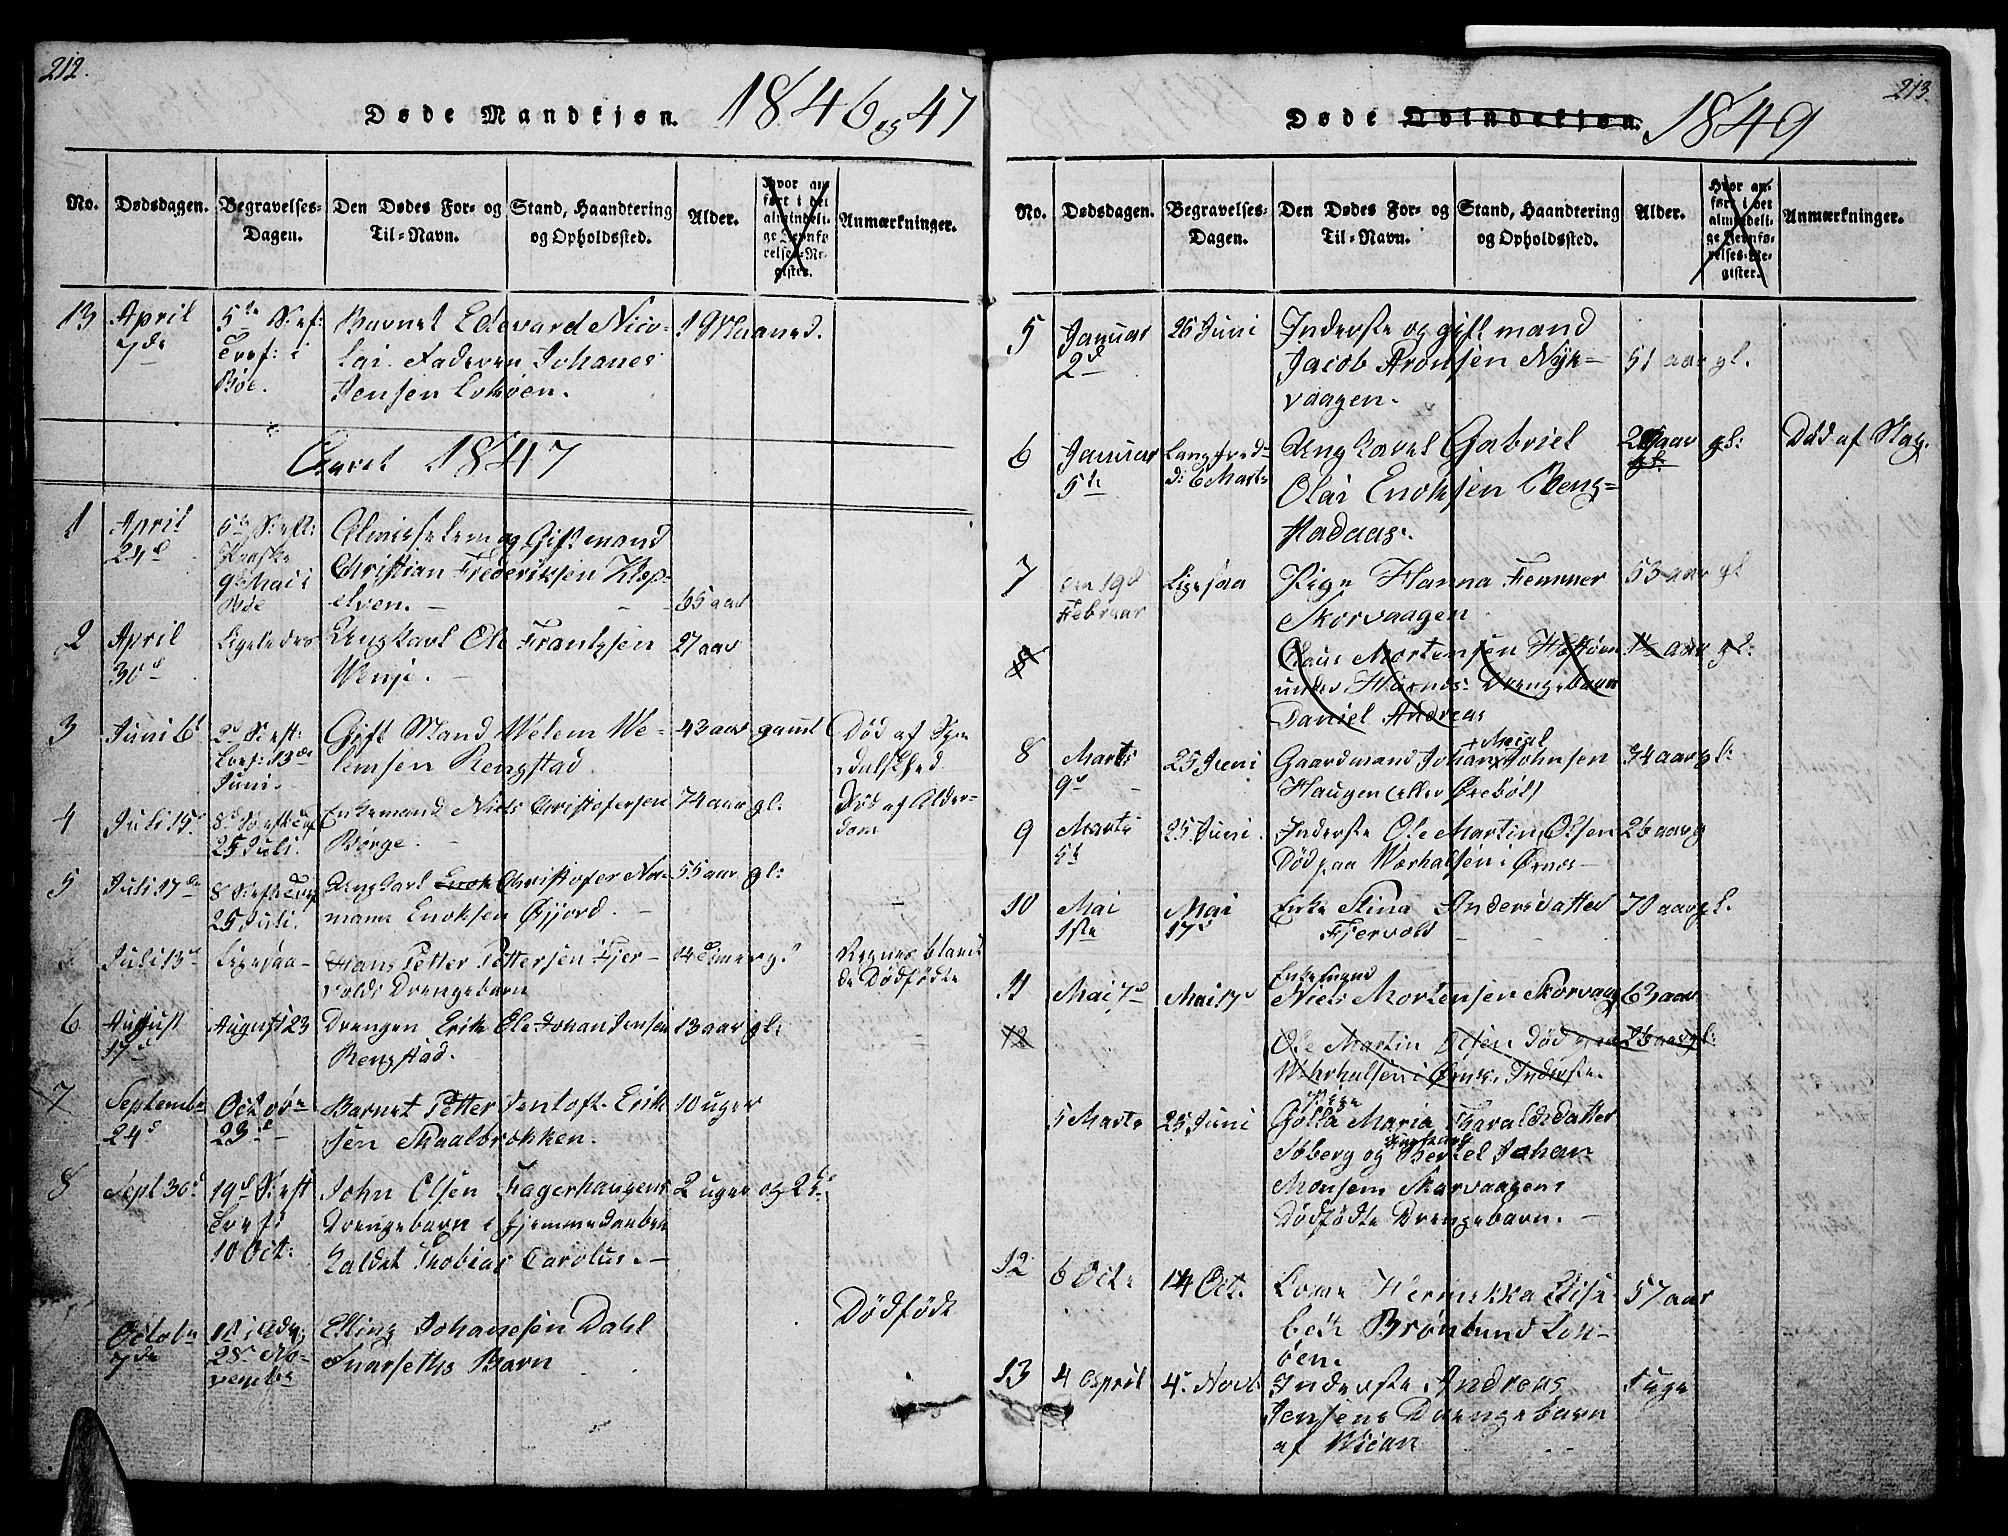 212.
Døde Mandkjøn. 1846 og 47
No. Dødsdagen. Begravelses-Dagen. Den Dødes For- og Til-Navn. Stand, Haandtering og Opholdssted. Alder. Hvor anført i det almindelige Jevnførelses-Register. Anmærkninger.
13 April 7de 5te S. ef: Tref: i Bøe. Barnet Edevard Nico-
lai. Faderen Johanes
Jensen Lohøen. 19 Maaned.
Aaret 1847
1 April 24d 9de Mai i Bøe Almisselem og Gift mand
Christian Frederiksen Klep-
elven. 55 aar
2 April 30d Ligeledes Ungkarl Ole Frantzen
Wenje. 27 aar
3 Juni 6t 13de Juni. Gift Mand Welem We-
lemsen Rengstad. 43 aar gaml Død af
4 Juli 15d 25 Juli. Enkemand Niels Christofersen
Børge. 74 aar gl. Død af Alder-
dom
5 Juli 17de 25 Juli. Ungkarl Enok Christofer Nor-
mann Enoksen Øjjord. 55 aar gl:
Juli 13d Ligesaa Hans Petter Pettersen Fjer-
volds Drengebarn 14 Timer gl Regnes blandt
de Dødfødte
6 August 17d August 23 Drengen Erik Ole Johan Jensen
Rengstad. 13 aar gl:
7 September 24d Octobr 23d Barnet Petter Jentoft Erik
sen Skaalbrækken. 10 uger
8 Sept 30d 19d S. eft Tref: 10 Oct: John Olsen Fagerhaugens
Drengebarn i hjemmedaaben
kaldet Thobias Carolus. 2 uger og 2 d:
Octobr 7de 28d November Elling Johanesen Dahl
Snarseths Barn Dødfødt
213.
Døde Qvindekjøn. 1849
No. Dødsdagen. Begravelses-Dagen. Den Dødes For- og Til-Navn. Stand, Haandtering og Opholdssted. Alder. Hvor anført i det almindelige Jevnførelses-Register. Anmærkninger.
5 Januar 2d 25 Juni Inderste og gift mand
Jacob Aronsen Nyk-
vaagen. 51 aar gl.
6 Januar 5te Langfredd: 6 Marts Ungkarl Gabriel
Olai Enoksen Reng-
stadaas. aar gl: Død af Slag.
7 den 19d Februar Ligesaa Pige Hanna Femmer
Skorvaagen 53 aar gl
Claus Mortensen
under Drengebarn
Daniel Andreas aar gl:
8 Marts 9d 25 Juni Gaardmand Johan Meisl Johnsen
Haugen eller Ørebøl 34 aar gl:
9 Marts 5t 25 Juni. Inderste Ole Martin Olsen
Død paa Værhalsen i Ørnes 26 aar g
10 Mai 1ste Mai 17d Enke Stina Andersdatter
Fjervold 70 aar gl.
11 Mai 7d Mai 17d Enkemand
Niels Mortensen Skorvaag 63 aar
12 Ole Martin Olsen Død paa 26 aar gl:
Værhalsen i Ørnes. Inderste.
5 Marts 25 Juni Pige
Golla Maria Haraldsdatter
Soberg og Ungkarl Bertel Johan
Monsens Skorvaagens
Dødfødte Drengebarn.
12 6 Octr 14 Oct. Kone Hermikka Elisa-
beth Brønlund Loh-
øen. 57 aar
13 4 April 4d Novb Inderste Andreas
Jensens Drengebarn
af Wiean 1 uge